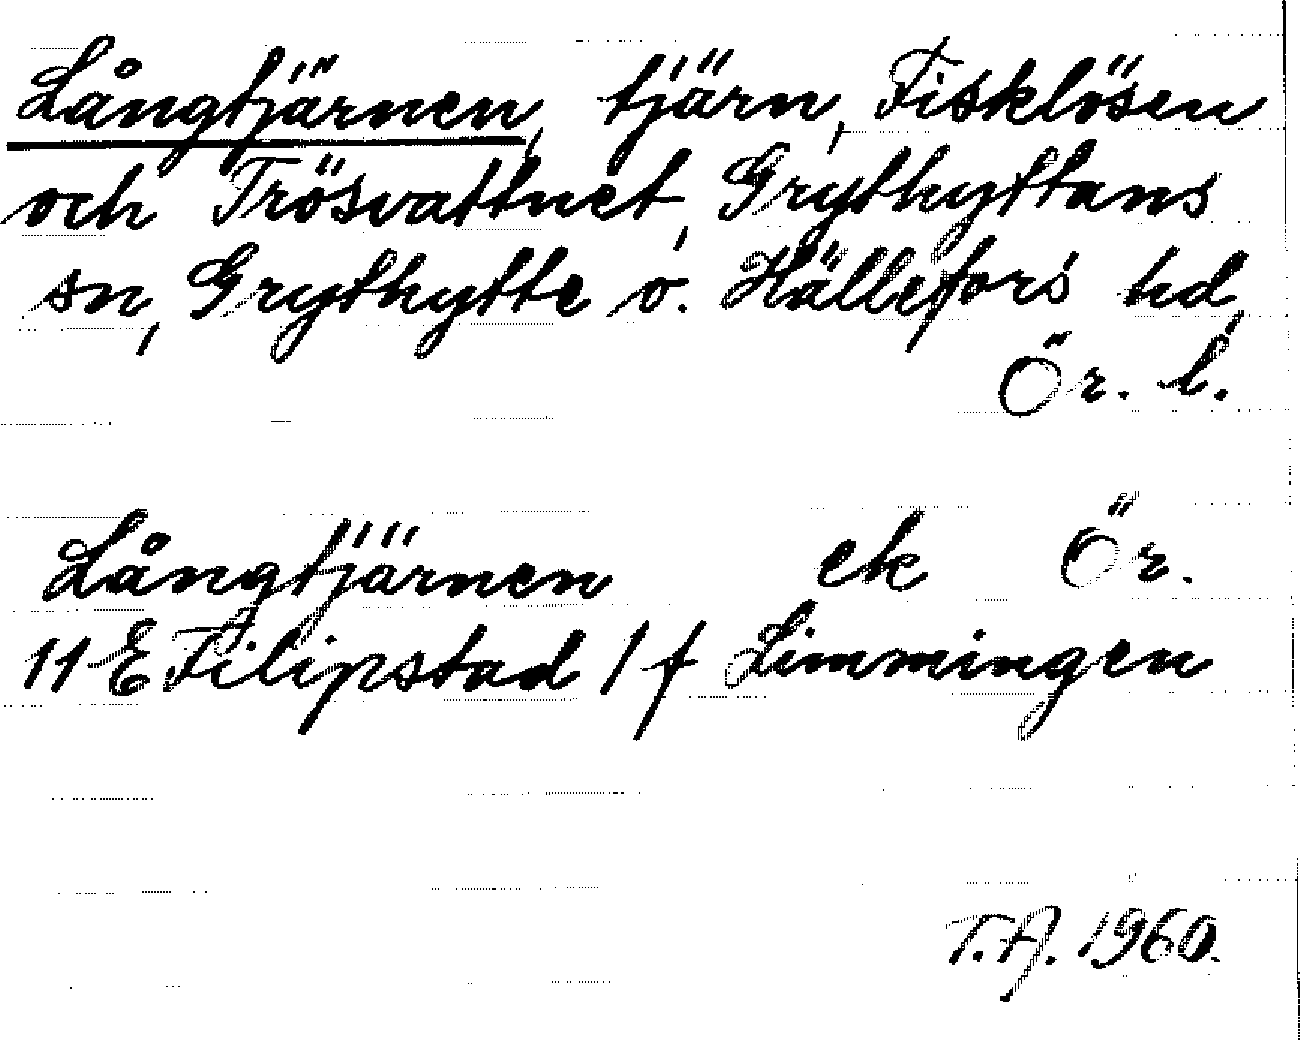 Långtjärnen, tjärn, Fisklösen
och Trösvattnet, Grythyttans
sn, Grythytte o. Hällefors hd,
Ör. l.
Långtjärnen ek Ör.
11 E Filipstad 1 f Limmingen
T.A. 1960.